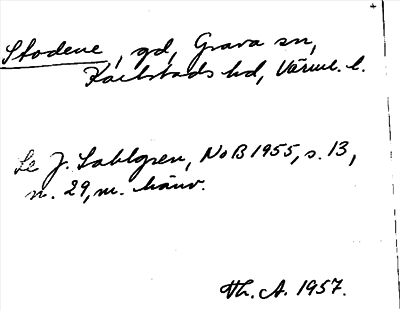 Stodene, gd, Grava sn,
Karlstads hd, Värml. l.
Se J. Sahlgren, NoB 1955, s. 13,
n. 29, m. hänv.
Th. A. 1957.